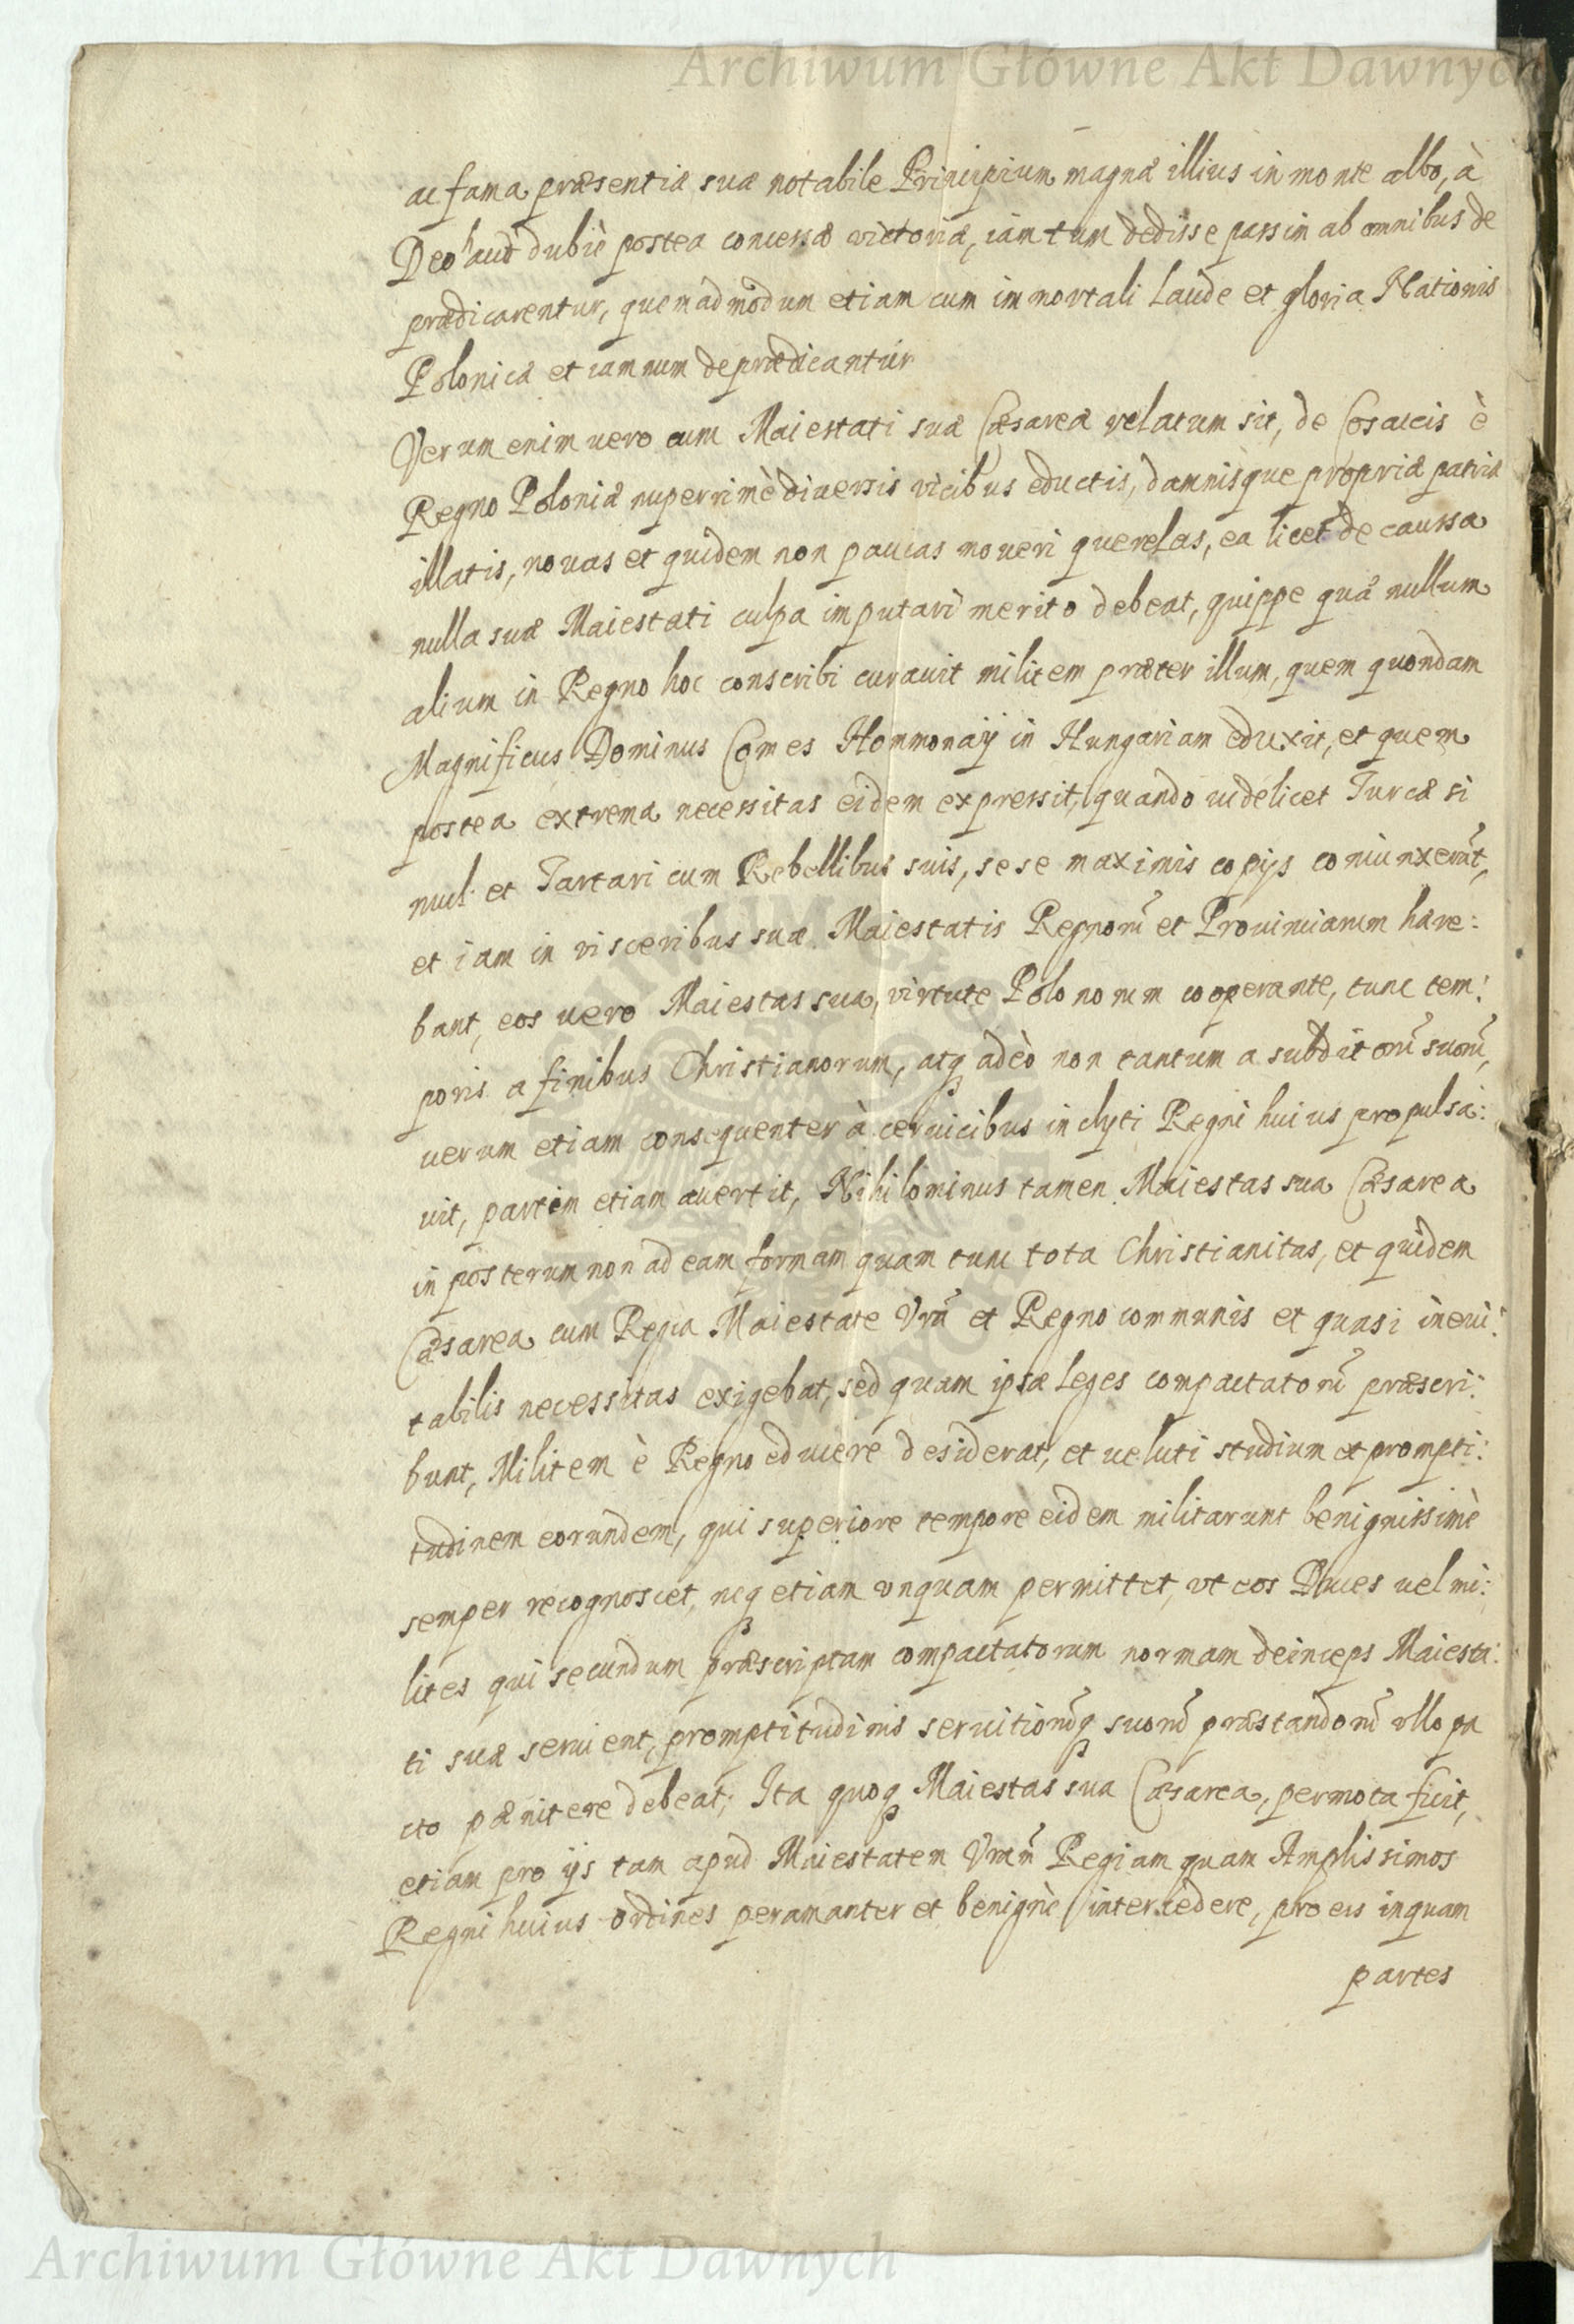 Archiwum Główne Akt Dawnych
ac fama præsentiæ suæ notabile Principium magnæ illius in monte albo, à
Deo haud dubiè postea concessæ victoriæ, iam tum dedisse passim ab omnibus de
prædicarentur, quemadmodum etiam cum immortali laude et gloria Nationis
Polonicæ et iamnum deprædicantur
Verum enim uero cum Maiestati suæ Cæsareæ relatum sit, de Cosaccis è
Regno Poloniæ nuperrimè diuersis vicibus eductis, damnisque propriæ patriæ
illatis, nouas et quidem non paucas moueri querelas, ea licet de caussa
nulla suæ Maiestati culpa imputari merito debeat, quippe quæ nullum
alium in Regno hoc conscribi curauit militem præter illum, quem quondam
Magnificus Dominus Comes Hommonaij in Hungariam eduxit, et quem
postea extrema necessitas eidem expressit, quando uidelicet Turcæ si
mul et Tartari cum Rebellibus suis, sese maximis copijs coniunxerũt,
et iam in visceribus suæ Maiestatis Regnorũ et Prouinciarum hære:
bant, eos uero Maiestas sua, virtute Polonorum cooperante, tunc tem:
poris a finibus Christianorum, atq adeò non tantum a subditorũ suorũ,
uerum etiam consequenter à ceruicibus inclyti Regni huius propulsa:
uit, partim etiam auertit, Nihilominus tamen Maiestas sua Cæsarea
in posterum non ad eam formam quam tunc tota Christianitas, et quidem
Cæsarea cum Regia Maiestate Vrã et Regno communis et quasi ineui:
tabilis necessitas exigebat, sed quam ipsæ Leges compactatorũ præscri:
bunt, Militem è Regno educere desiderat, et ueluti studium et prompti:
tudinem eorundem, qui superiore tempore eidem militarunt benignissimè
semper recognoscet, neq etiam vnquam permittet, vt eos Duces uel mi:
lites qui secundum præscriptam compactatorum normam deinceps Maiesta:
ti suæ seruient, promptitudinis seruitiorũq suorũ præstandorũ vllo pa
cto pænitere debeat; Ita quoq Maiestas sua Cæsarea, permota fuit,
etiam pro ijs tam apud Maiestatem Vram̃ Regiam quam Amplissimos
Regni huius ordines peramanter et benignè intercedere, pro eis inquam
partes
Archiwum Główne Akt Dawnych